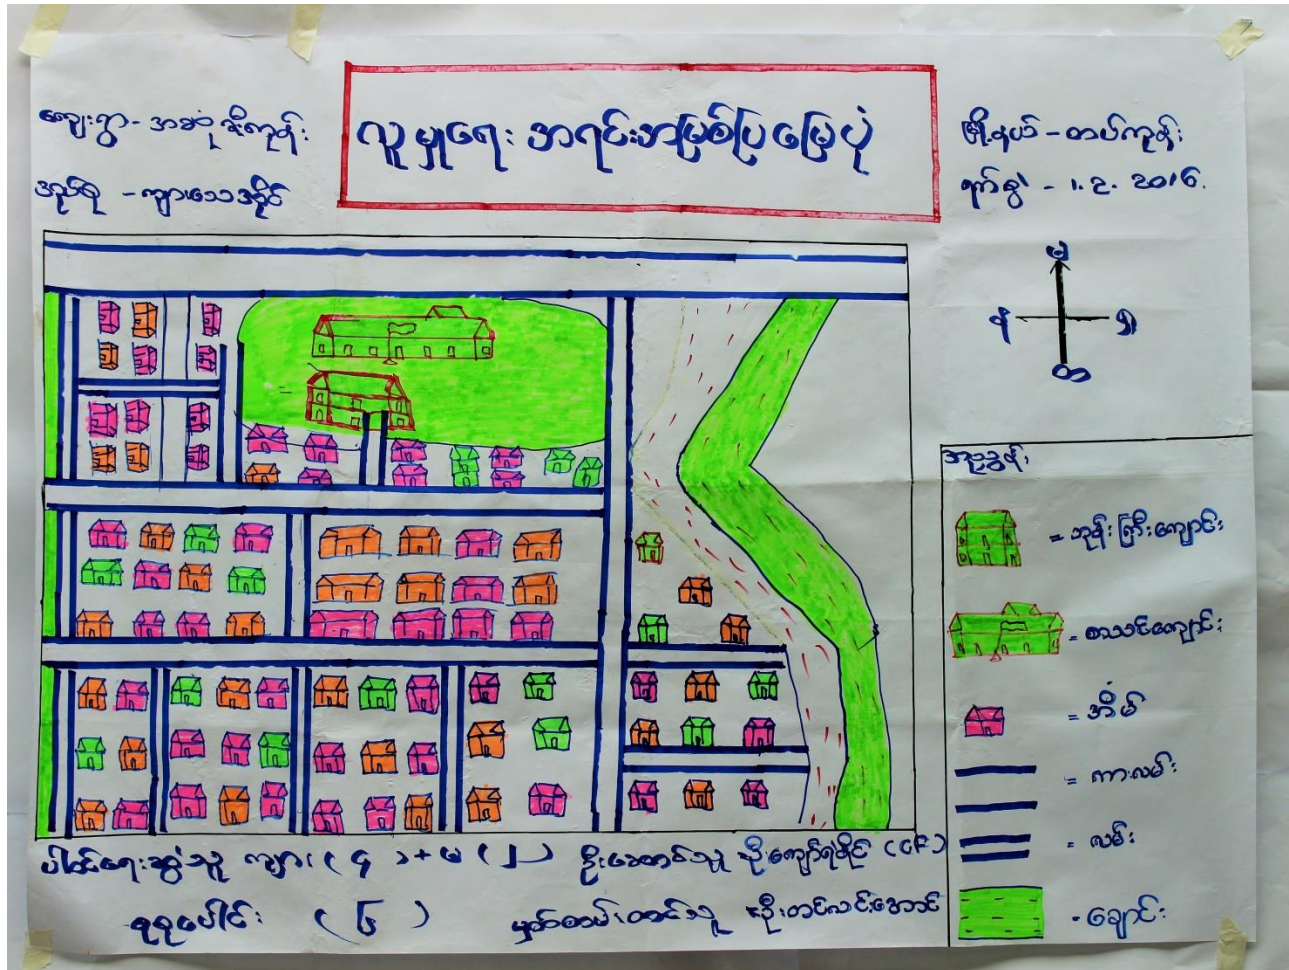 ကျေးရွာ - အဆုံချီးကုန်း
အုပ်စု - ကျားသေအိုင်
လူမှုရေး အရင်းအမြစ်ပြမြေပုံ
မြို့နယ် - တပ်ကုန်း
ရက်စွဲ - ၁. ၃. 2016.
မ
န
ရှ
တ
အညွှန်း
= ဘုန်းကြီးကျောင်း
= စာသင်ကျောင်း
= အိမ်
= ကားလမ်း
= လမ်း
- ချောင်း
ပါဝင်ရေးဆွဲသူ ကျား (၄) + မ (၂) ဦးဆောင်သူ (CF)
စုစုပေါင်း (၆) မှတ်တမ်းတင်သူ ဦးတင်လင်းအောင်